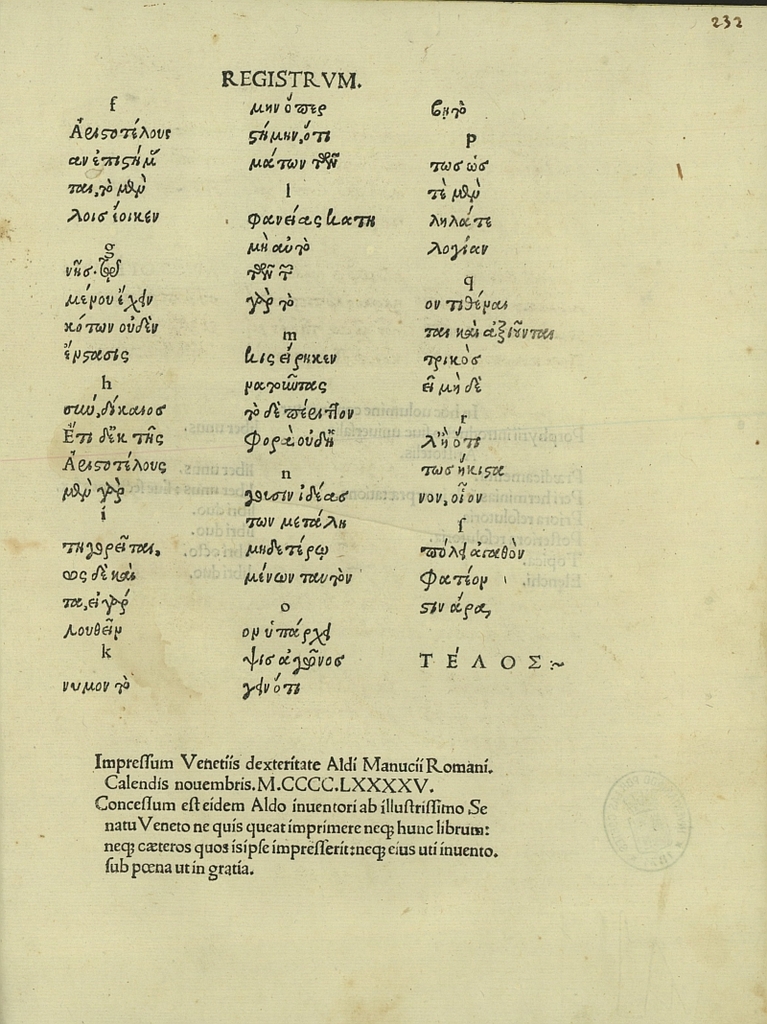 232
REGISTRVM.
f
Ἀριστοτέλους
αν ἐπιστήμ
ται, τὸ μὲν
λοισ ἔοικεν
g
νῆσ.
μένου ἔχειν
κότων οὐδὲν
ἔνστασις
h
σκύ, δίκαιοσ
Ἔτι δὲκ τῆς
Ἀριστοτέλους
μὲν γὰρ
i
τηγορεῖται,
ως δὲ καὶ
τα, εἰ γὰρ
λουθεῖν
k
νυμον τὸ
μην ὅπερ
στήμην, ὅτι
μάτων τῶν
l
φανείας κατη
μὴ αὐτὸ
τῶν
γὰρ τὸ
m
κις εἴρηκεν
ρατιώτας
τὸ δὲ πέριττον
φορὰ οὐδὲ
n
γθισιν ἰδέας
των μεταλη
μηδετέρω
μένων ταυτὸν
o
ον ὑπάρχει
ψισ ἀγῶνοσ
γειν ὅτι
ϐητὸ
p
τωσ ὡσ
τὲ μὲν
ληλάτε
λογίαν
q
ον τιθέμαι
ται καὶ ἀξιοῦνται
τρικὸσ
εἰ μὴ δὲ
r
λὴ ὅτι
τωσ ἥκιστα
νον, οἷον
ſ
πόλει ἀγαθὸν
φατέον
στιν ἄρα,
ΤΈΛΟΣ:~
Impreſſum Venetiis dexteritate Aldi Manucii Romani.
Calendis nouembris.M.CCCC.LXXXXV.
Conceſſum eſt eidem Aldo inuentori ab illuſtriſſimo Se
natu Veneto ne quis queat imprimere neq; hunc librum:
neq; cæteros quos is ipſe impreſſerit: neq; eius uti inuento.
ſub pœna ut in gratia.